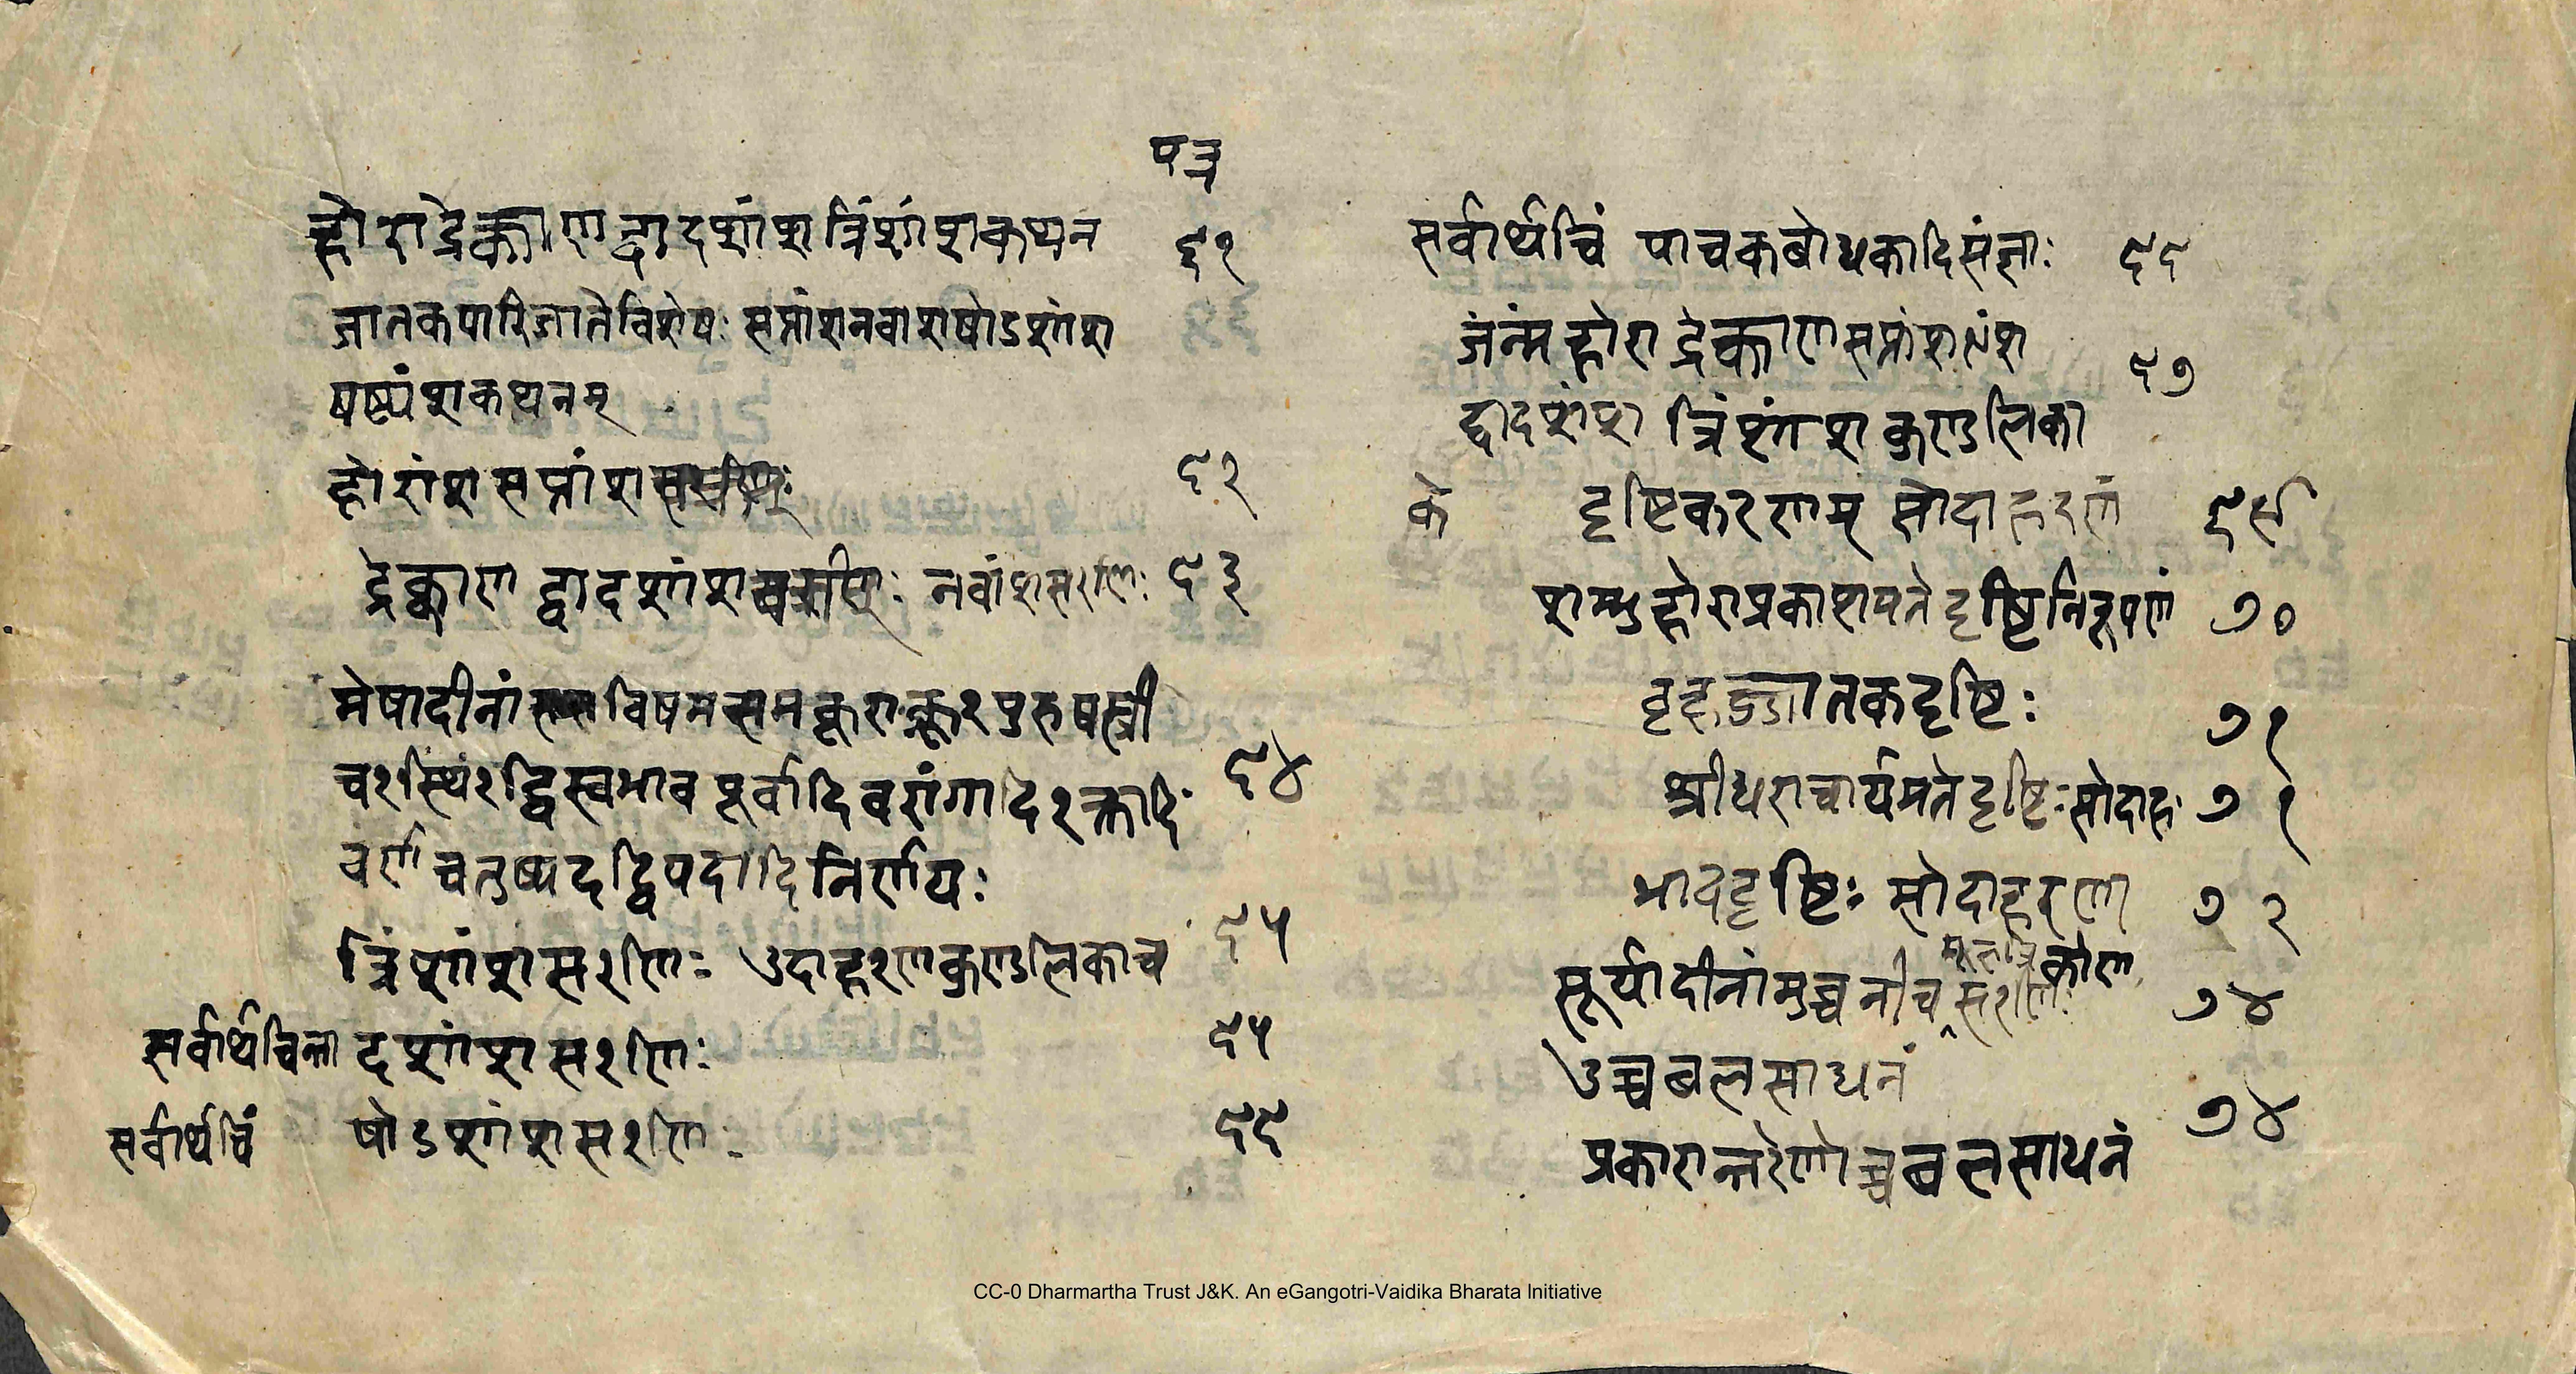 पत्र
होराद्रेक्काणद्वादशांशत्रिंशांशकथन ६१
जातकपारिजातेविशेषः सप्तांशनवांशषोडशांश
षष्ट्यंशकथनम्
होरांशसप्तांश ६२
द्रेक्काण द्वादशांश नवांशसरणिः ६३
मेषादीनां विषमसमक्रूराक्रूरपुरुषस्त्री
चरस्थिरद्विस्वभाव पूर्वादिवरांगादिरक्तादि ६४
वर्णचतुष्पदद्विपदादिनिर्णयः
त्रिंशांशसरणिः उदाहरणकुण्डलिकाच ६५
सर्वार्थचिन्ता दशांशसरणिः ६५
सर्वार्थचिं षोडशांशसरणिः ६६
सर्वार्थचिं पाचकबोधकादिसंज्ञाः ६६
जन्महोरा द्रेक्काणसप्तांशनवांश
द्वादशांश त्रिंशांश कुण्डलिका ६७
के दृष्टिकरणम् सोदाहरणं ६९
शम्भुहोराप्रकाशमते दृष्टिनिरूपणं ७०
बृहज्जातकदृष्टिः ७१
श्रीधराचार्यमते दृष्टिः सोदाह ७१
भावदृष्टिः सोदाहरणा ७२
सूर्यादीनांमुच्चनीच मूलत्रिकोण सरणिः ७४
उच्चबलसाधनं
प्रकारान्तरेणोच्चबलसाधनं ७४
CC-0 Dharmartha Trust J&K. An eGangotri-Vaidika Bharata Initiative